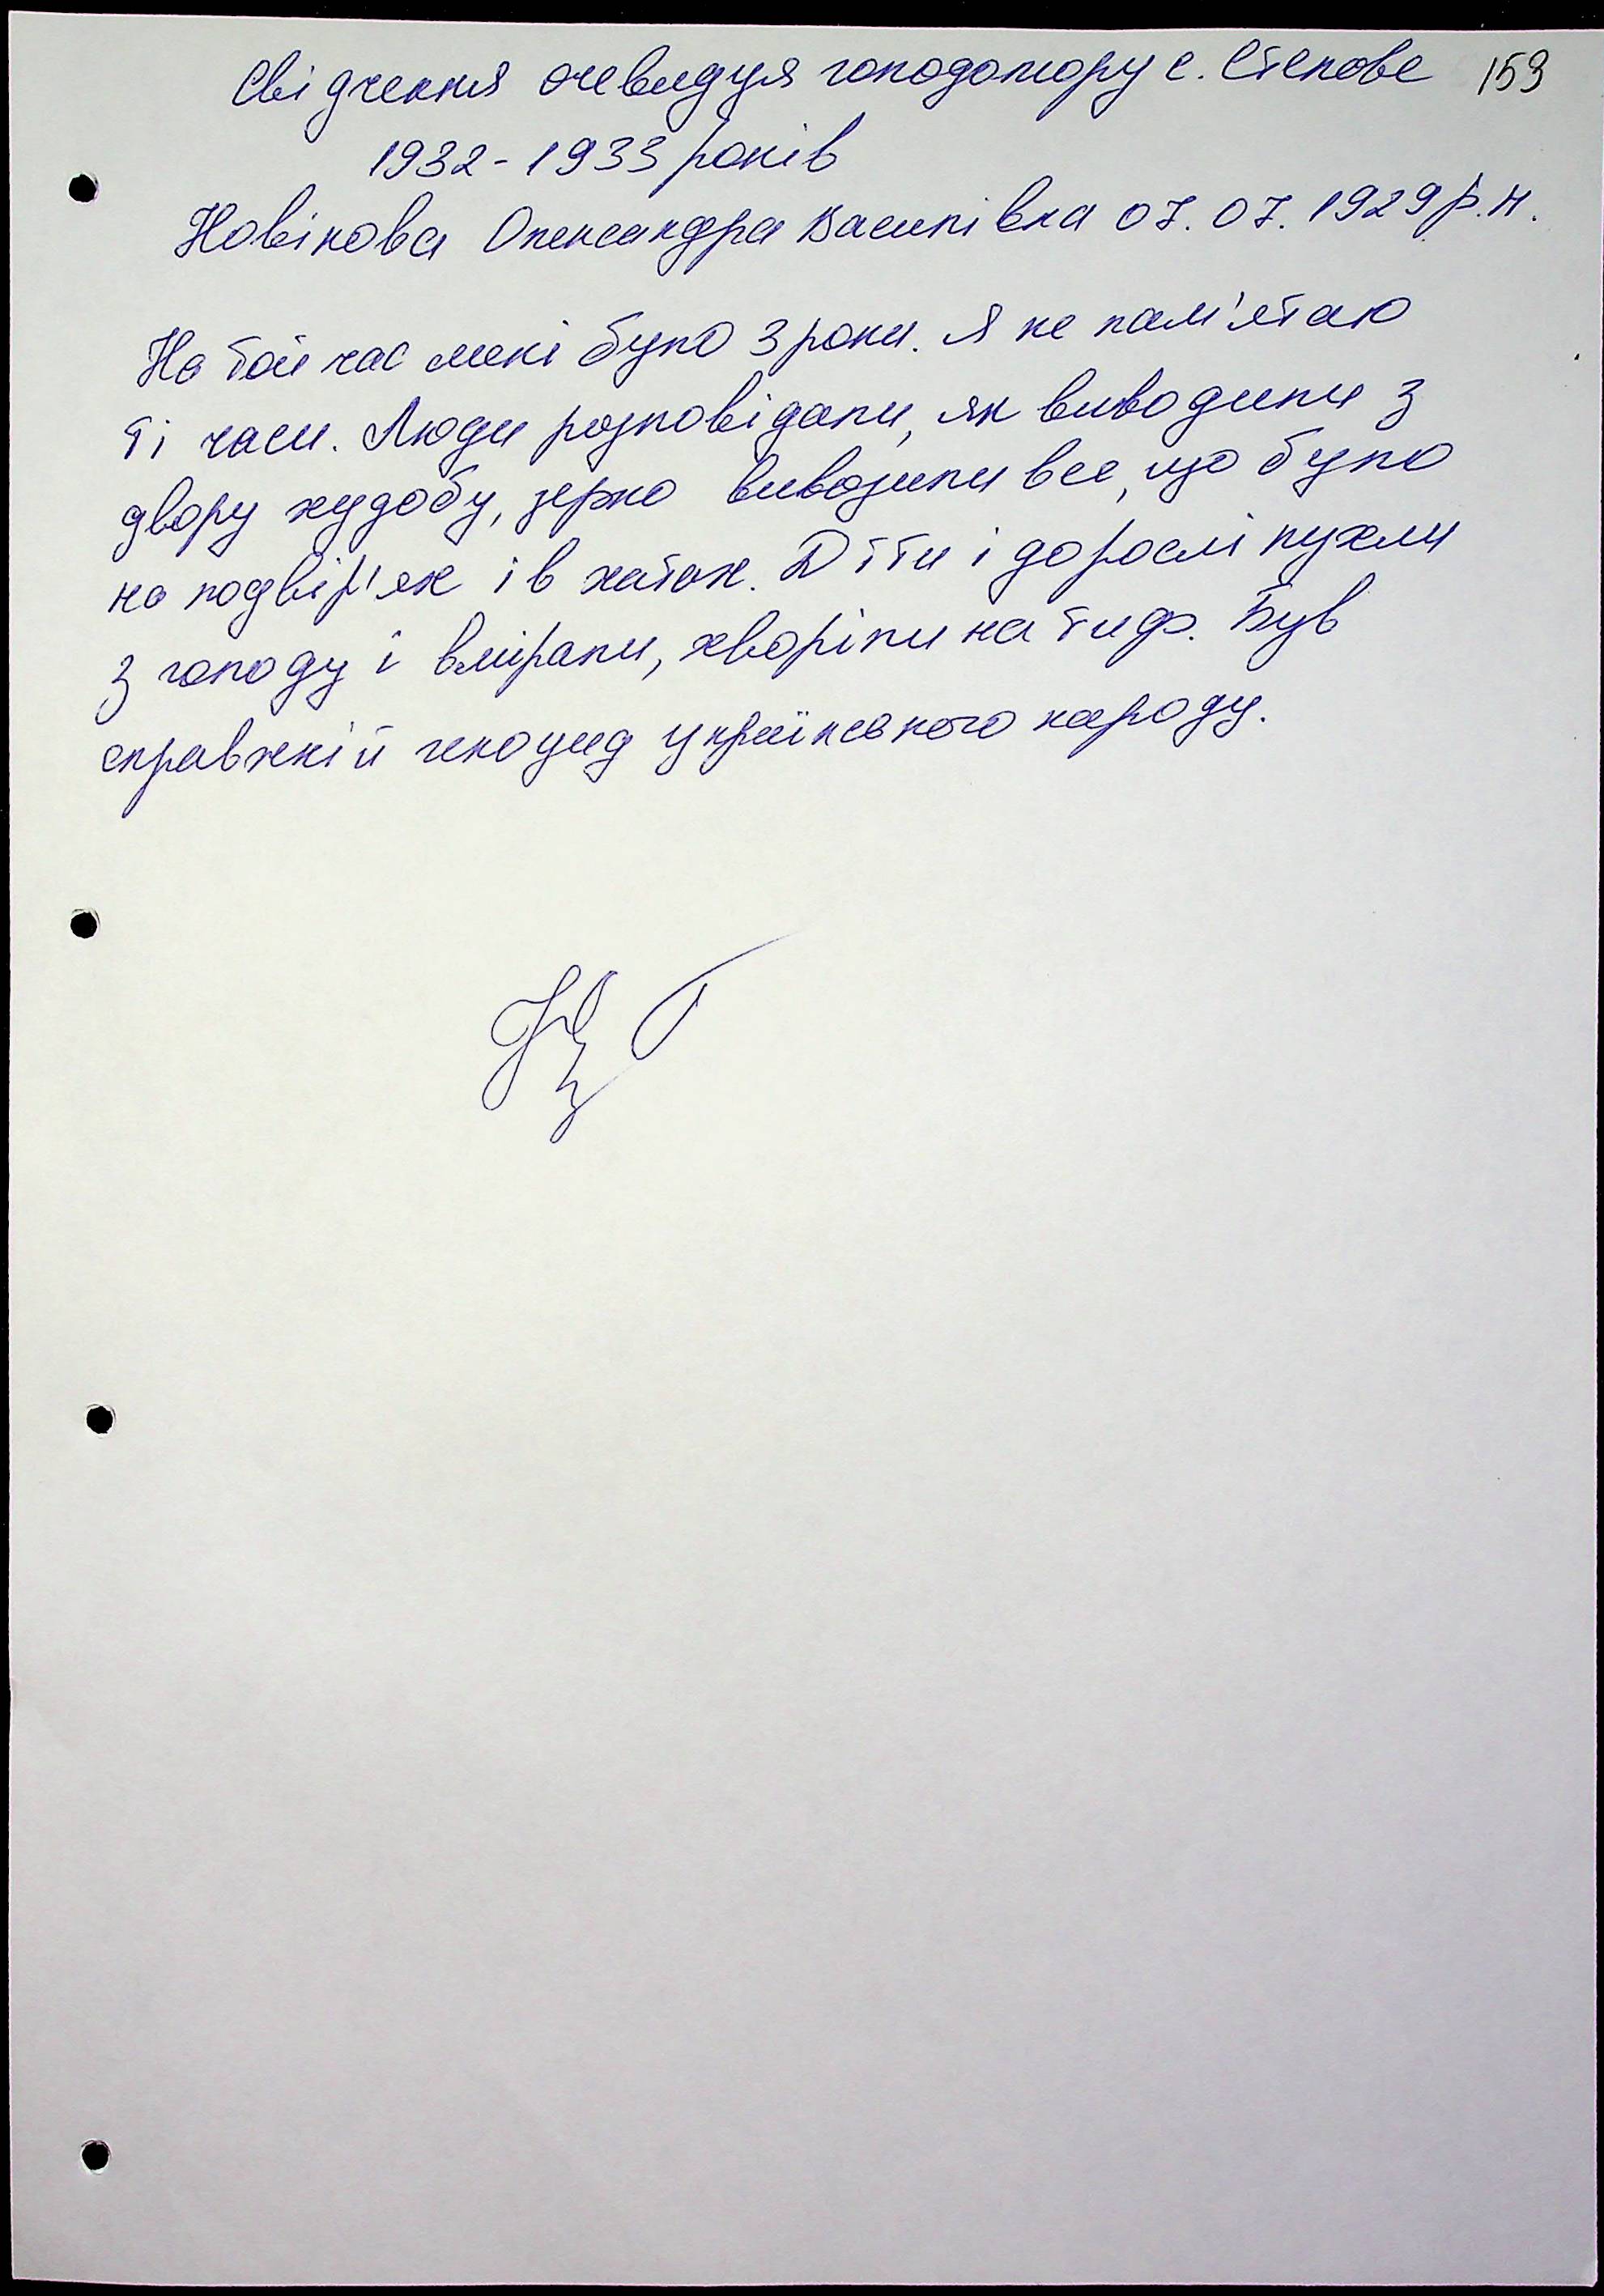 Свідчення очевидця голодомору с. Степове 159
1932-1933 років
Новікова Олександра Василівна 07.07.1929 р.н.
На той час мені було 3 роки. Я не пам'ятаю
ті часи. Люди розповідали, як виводили з
двору худобу, зерно вивозили все, що було
на подвір'ях і в хатах. Діти і дорослі пухли
з голоду і вмірали, хворіли на тиф. Був
справжній геноцид українського народу.